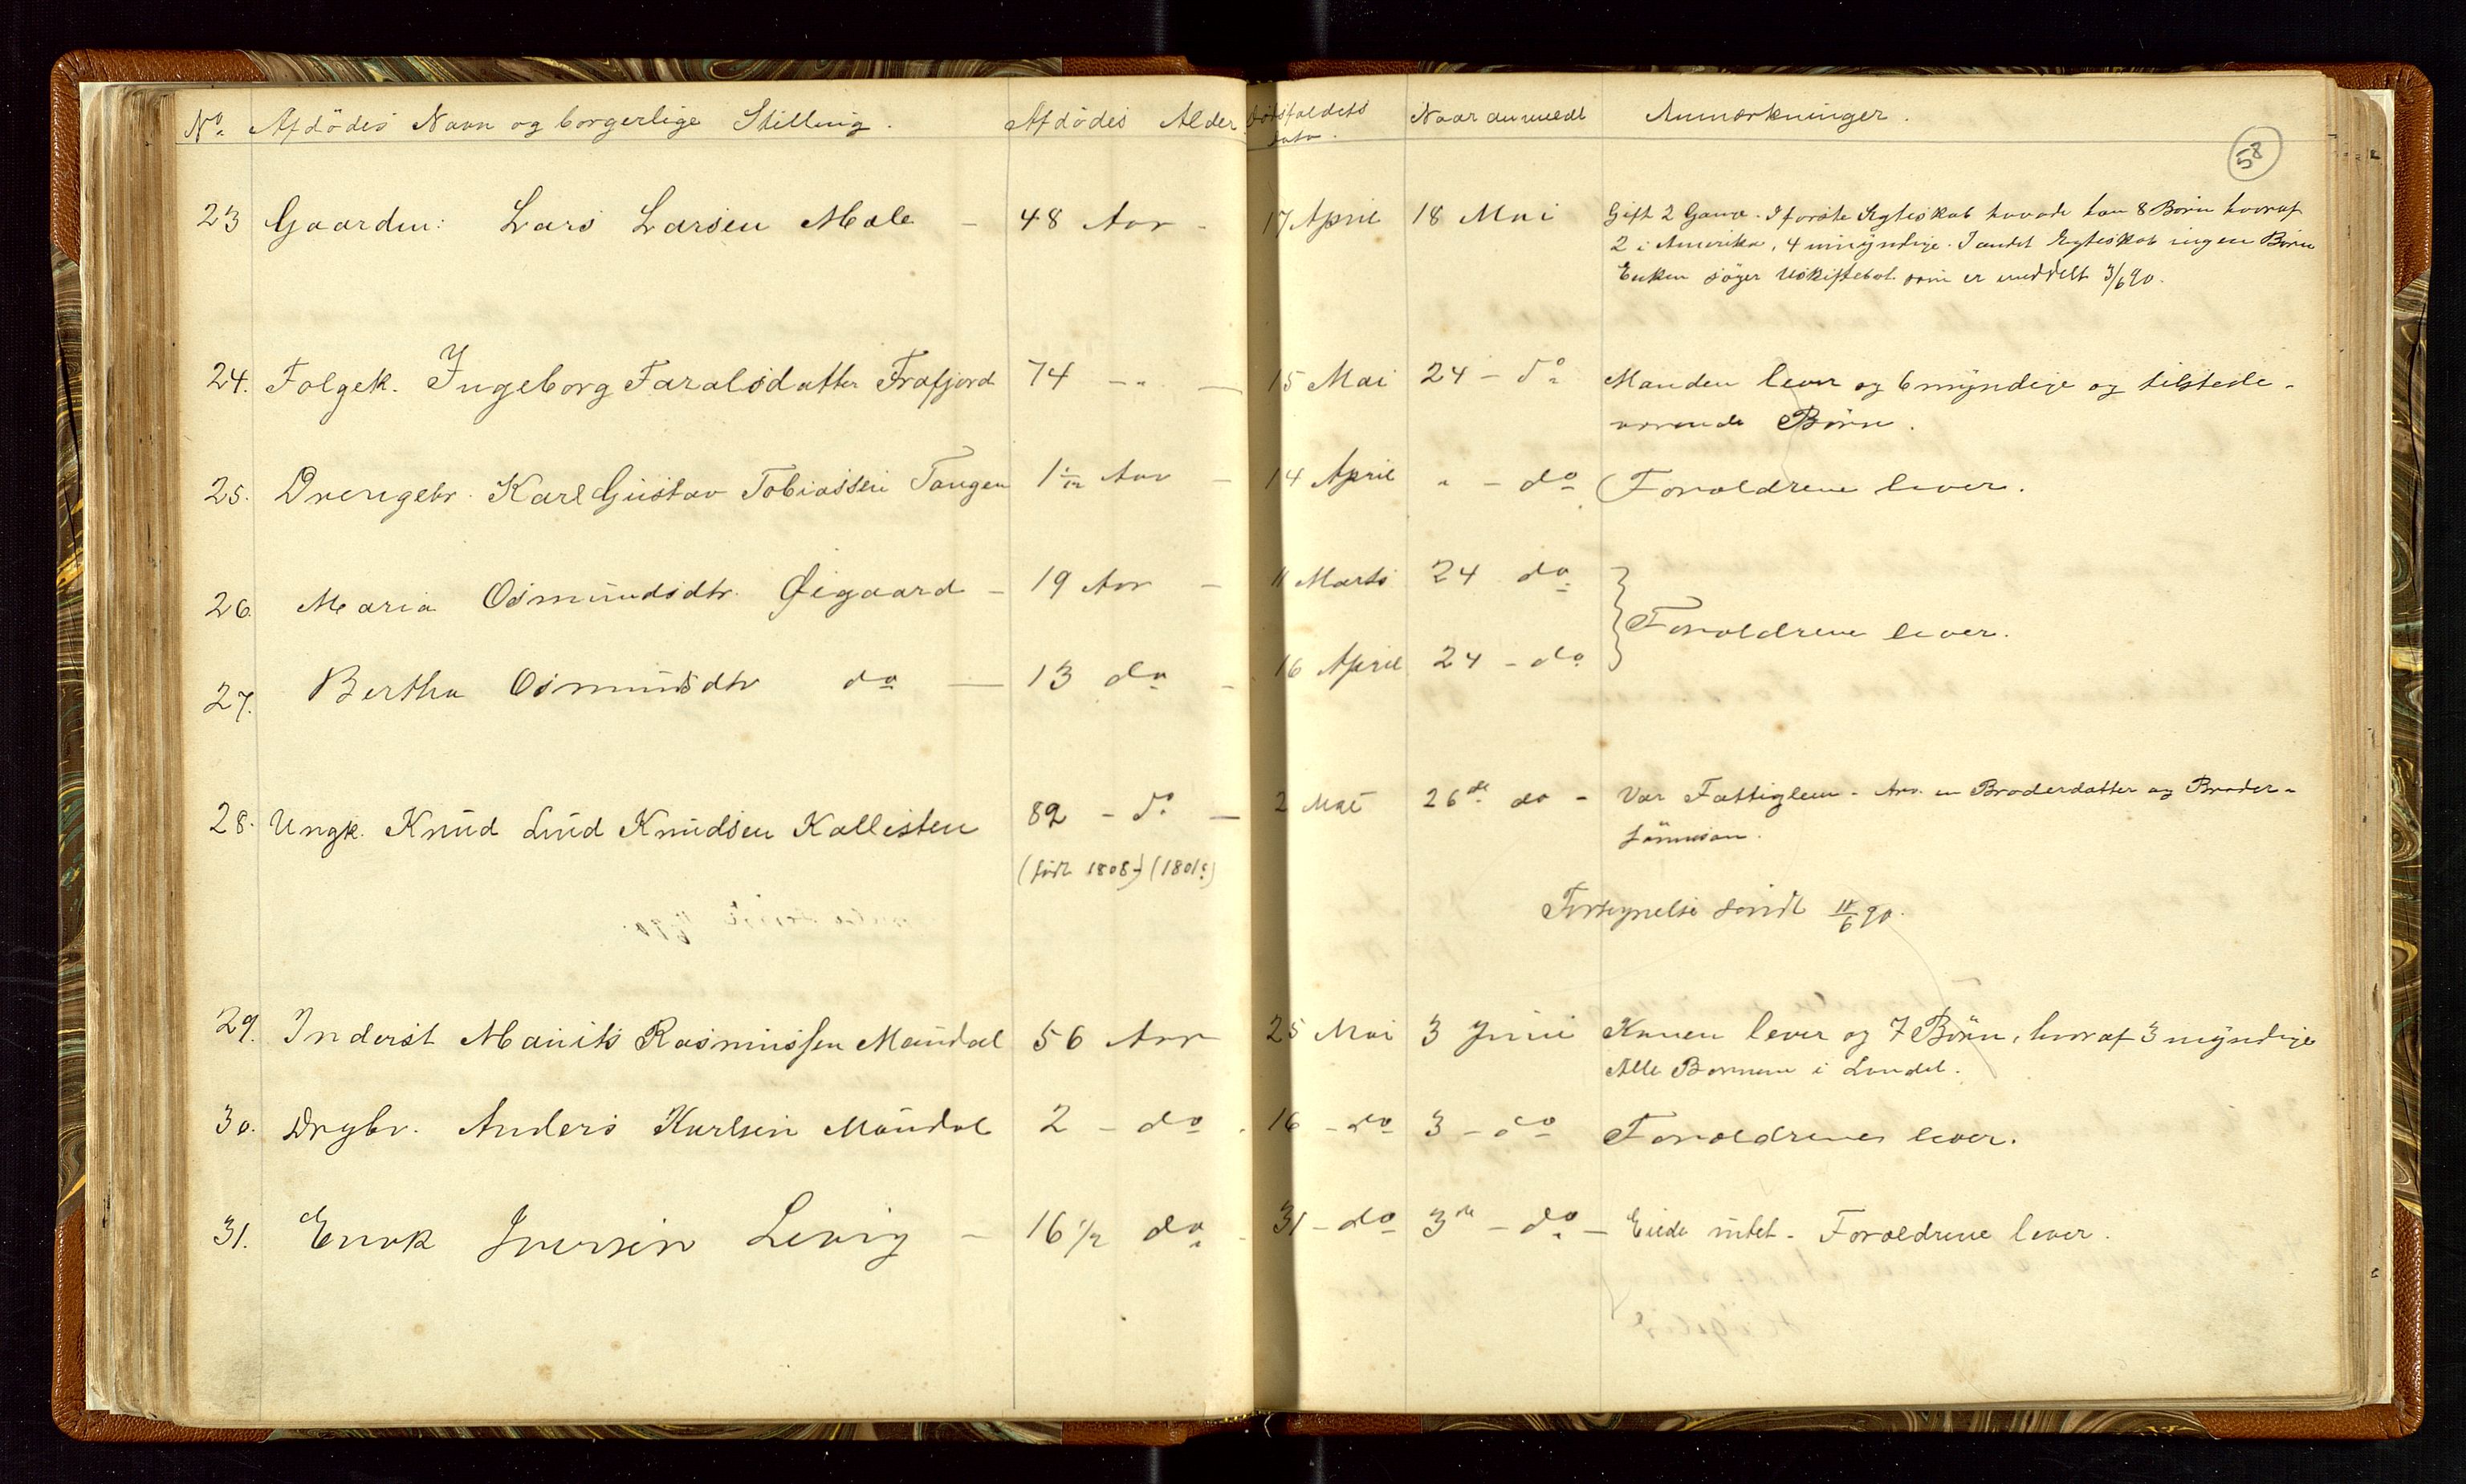 No. Afdødes Navn og borgerlige Stilling. Afdødes Alder Dødsfaldets Dato. Naar anmeldt Anmærkninger.
58
23 Gaardm: Lars Larsen Mæle - 48 Aar - 17 April 18 Mai Gift 2 Gange. I første Egteskab havde han 8 Børn hvoraf
2 i Amerika, 4 umyndige. I andet Egteskab ingen Børn
Enken søger Uskiftebev. som er meddelt 3/6 90.
24. Folgek. Ingeborg Taraldsdatter Frafjord 74 - " - 15 Mai 24 - do Manden lever og 6 myndige og tilstede-
værende Børn.
25. Drengebr. Karl Gustav Tobiassen Tangen 1 1/12 Aar - 14 April " - do Forældrene lever.
26. Maria Osmundsdtr. Øigaard - 19 Aar - 11 Marts 24 do
Forældrene lever.
27. Bertha Osmundsdtr do - 13 do - 16 April 24 - do
28. Ungk. Knud Lud Knudsen Kallesten 82 - do - 2 Mai 26de do - Var Fattiglem - Arv. en Broderdatter og Broder-
sønnesøn.
(født 1808) (1801?)
Fortegnelse sendt 11/6 90.
29. Inderst Mauits Rasmussen Maudal 56 Aar 25 Mai 3 Juni Konen lever og 7 Børn, hvoraf 3 myndige
Alle Børnene i Landet.
30. Drgbr. Anders Karlsen Maudal 2 - do - 16 - do 3 - do Forældrenes lever.
31. Enok Iversen Lervig - 16 1/2 do - 31 - do 3de - do - Eiede intet - Forældrene lever.